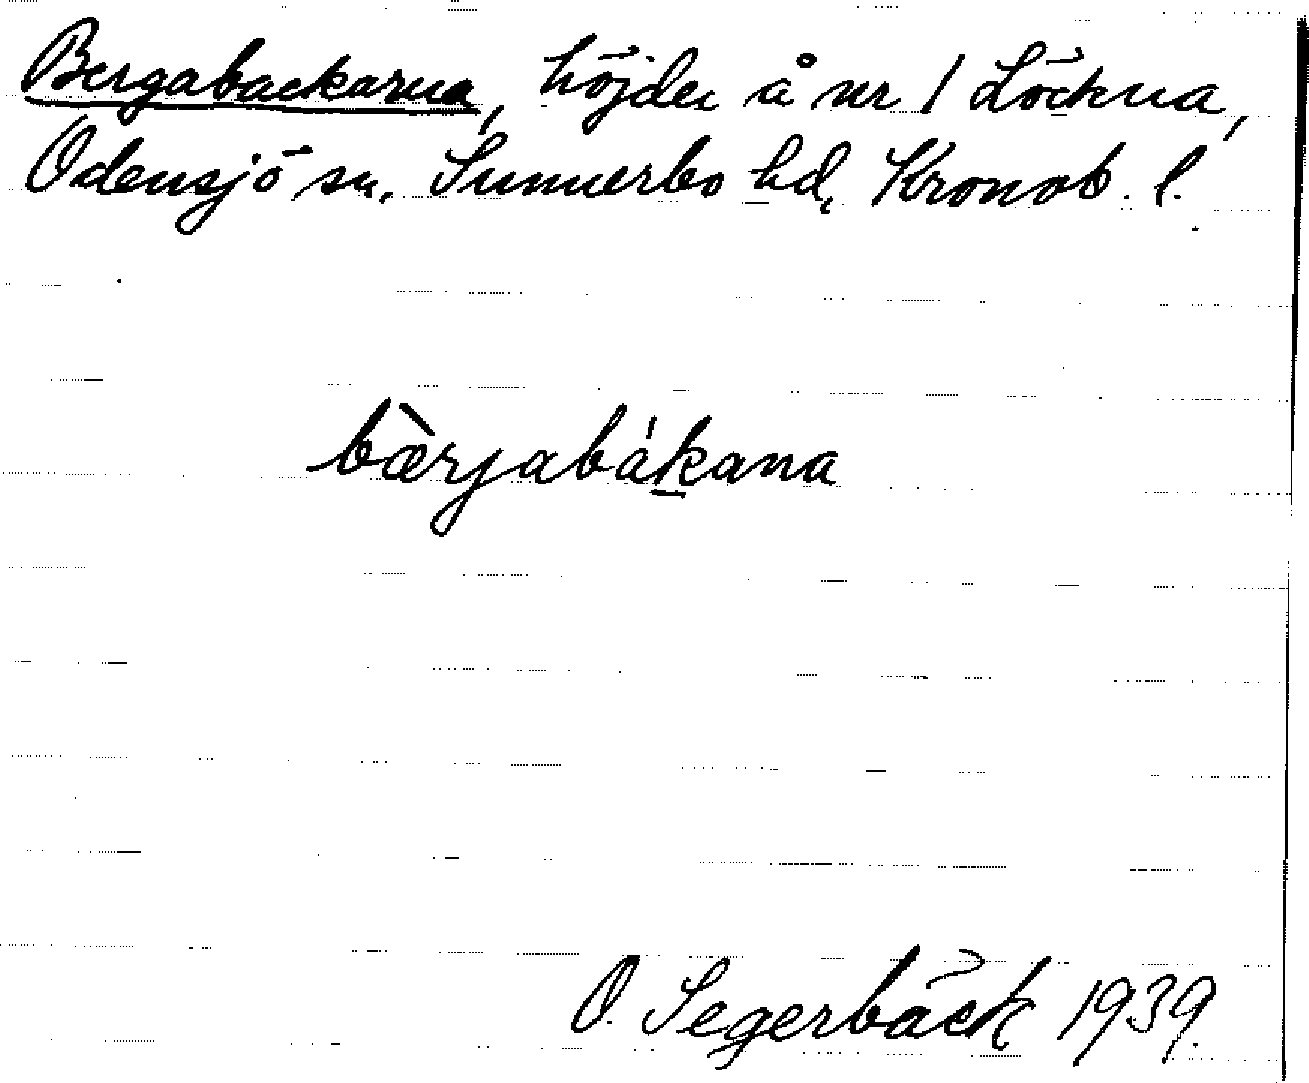 Bergabackarna, höjder å nr 1 Löckna,
Odensjö sn. Sunnerbo hd, Kronob. l.
bærjabákana
O. Segerbäck 1939.